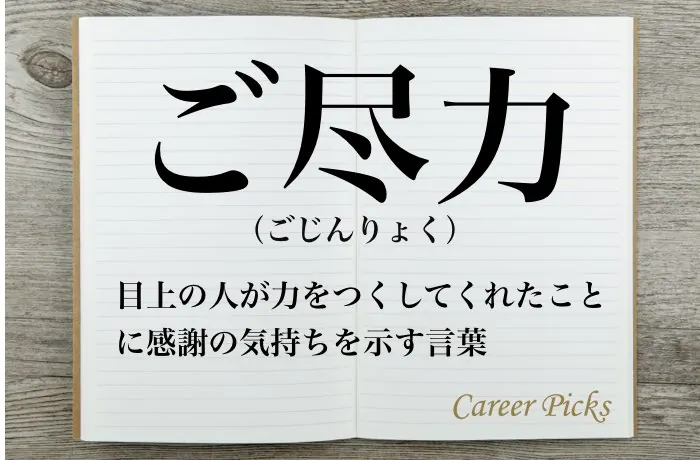 ご尽力
（ごじんりょく）
目上の人が力をつくしてくれたこと
に感謝の気持ちを示す言葉
Career Picks